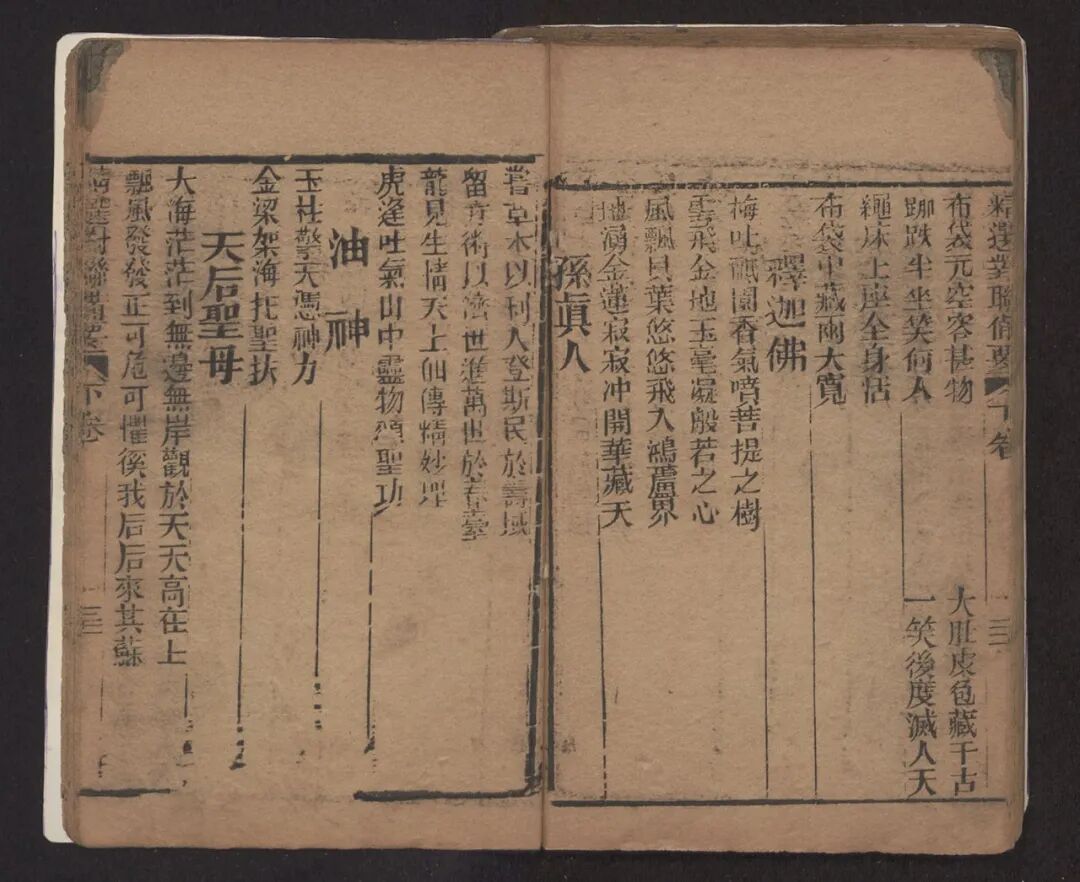 精選對聯備要 下卷 三
布袋元空容甚物 大肚皮包藏千古
跏趺半坐笑何人 一笑後度滅人天
繩床上座全身活
布袋中藏兩大寬
釋迦佛
梅吐祇園香氣噴菩提之樹
雲飛金地玉毫凝般若之心
風飄貝葉悠悠飛入鴻蘆界
地涵金蓮寂寂冲開華藏天
孫眞人
嘗草木以利人登斯民於壽域
留 術以濟世進萬世於春臺
龍見生情天上仙傳精妙理
虎逢吐氣山中靈物頌聖功
油神
玉柱擎天憑神力
金梁架海托聖扶
天后聖母
大海茫茫到無邊無岸觀於天天高在上
飄風發發正可危可懼徯我后后來其蘇
精選對聯備要 下卷 三